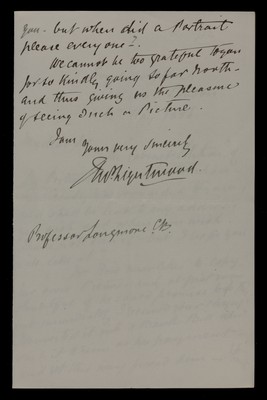 you - but when did a Portrait
please everyone?.
We cannot be too grateful to you
for so kindly going so far North -
and thus giving us the pleasure
of seeing such a Picture.
I am yours very sincerely
Professor Longmore CB.